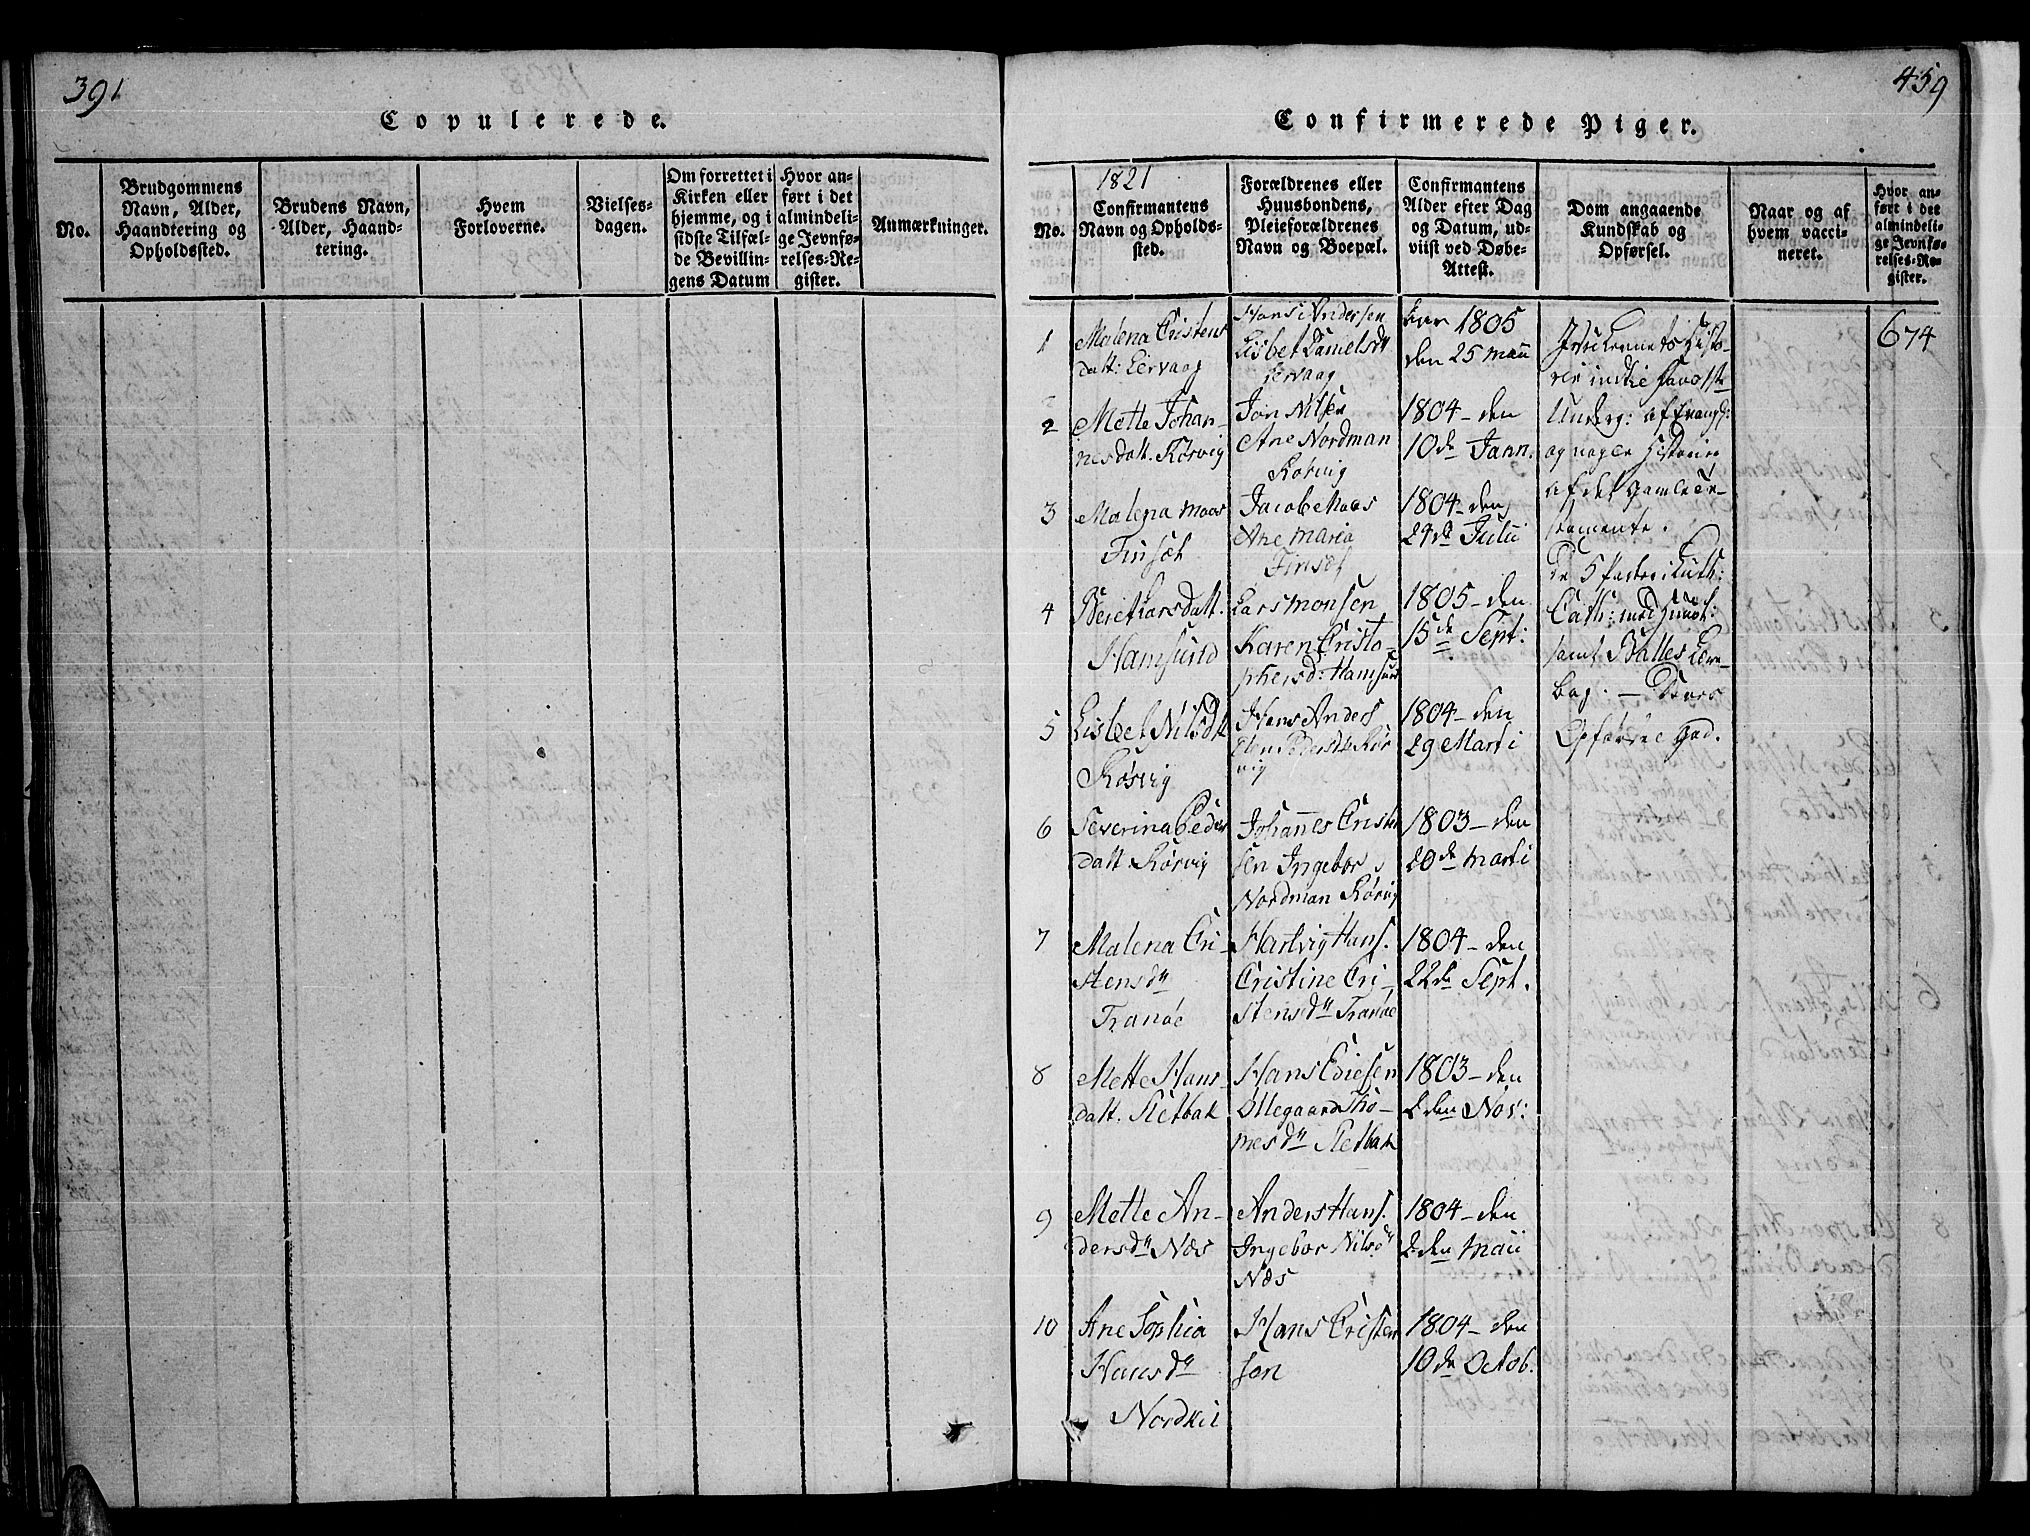 391
Copulerede.
No.
Brudgommens
Navn, Alder,
Haandtering og
Opholdssted.
Brudens Navn,
Alder, Haand-
tering.
Hvem
Forloverne.
Vielses-
dagen.
Om forrettet i
Kirken eller
hjemme, og i
sidste Tilfæl-
de Bevillin-
gens Datum
Hvor an-
ført i det
almindeli-
ge Jevnfø-
relses-Re-
gister.
Anmærkninger.
459
Confirmerede Piger.
No.
1821
Confirmantens
Navn og Opholds-
sted.
Forældrenes eller
Huusbondens,
Pleieforældrenes
Navn og Boepæl.
Confirmantens
Alder efter Dag
og Datum, ud-
viist ved Døbe-
Attest.
Dom angaaende
Kundskab og
Opførsel.
Naar og af
hvem vacci-
neret.
Hvor an-
ført i det
almindeli-
ge Jevnfø-
relses-Re-
gister.
1
Malena Cristens
datt: Eervaag
Hans Andersen
Lisbet Danielsdtt
Eervaag
1805
den 25 maii
674
2
Mette Johan-
nesdatt. Rørvig
Jon Nilsen
Ane Nordman
Rørvig
1804 - den
10de Jann.
3
Malena Maas
Finsæt
Jacob Maas
Ane Maria
Finsæt
1804 - den
24de Julii
4
Beiet Larsdatt.
Hamsund
Lars Monsen
Karen Cristo-
phersd: Hamsund
1805 - den
15de Sept:
5
Lisbet Nilsdtt
Rørvig
Hans Anders
Elen Pedersdtt Rør
vig
1804 - den
29 Marti
6
Severina Peders
datt Rørvig
Johannes Crist
sen Ingebor
Nordman Rørvig
1803 - den
20de Marti
7
Malena Cri-
stensdtt
Tranøe
Hartvig Hans.
Cristine Cri-
stensdtt Tranøe
1804 - den
22de Sept.
8
Mette Hans
datt. Sletbak
Hans Ediesen
Ollegaard Tho-
mesdtt Sletbak
1803 - den
2den Nov:
9
Mette An-
dersdtt Næs
Anders Hans.
Ingebor Nilsdtt
Næs
1804 - den
2den Maii
10
Ane Sophia
Hansdtt
Nordkil
Hans Cristen
sen
1804 - den
10de Octob.
Underg: af Evangl:
og nogle Historier
af det gamle Te-
stamente.
De 5 Parter i Luth:
Cath: med
samt Balles Lære-
bog. - Deres
Opførsel god.